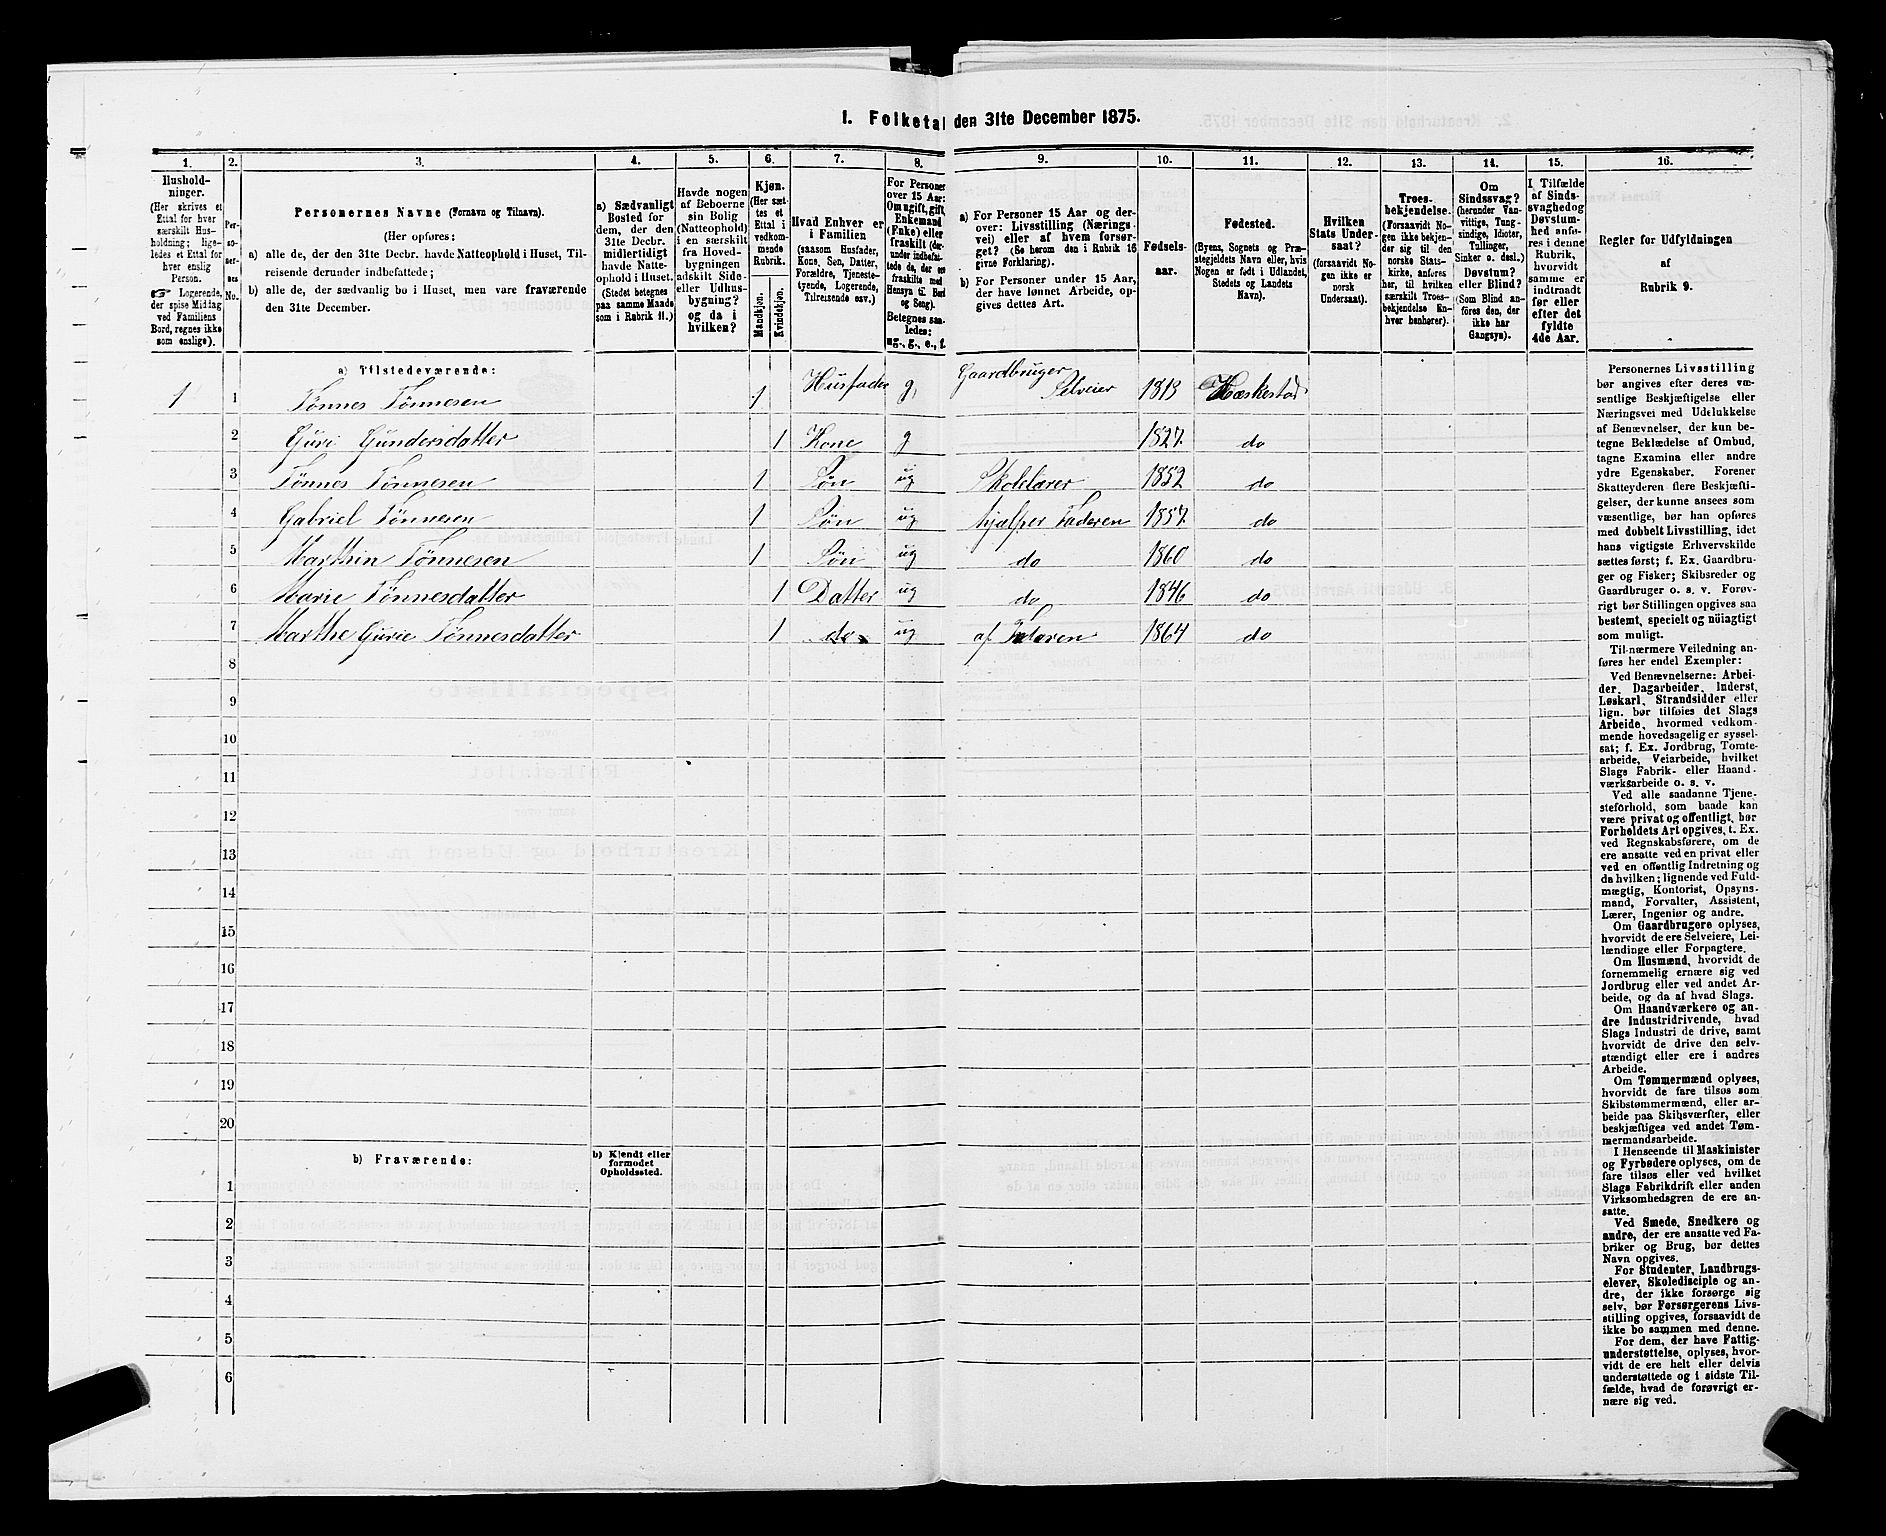 I. Folketal den 31te December 1875.
1. 2. 3. 4. 5. 6. 7. 8. 9. 10. 11. 12. 13. 14. 15. 16.
Hushold-
ninger.
(Her skrives et
Ettal for hver
særskilt Hus-
holdning; lige-
ledes et Ettal for
hver enslig
Person.
☞ Logerende,
der spise Middag
ved Familiens
Bord, regnes ikke
som enslige).
Per-
so-
ner-
nes
No.
Personernes Navne (Fornavn og Tilnavn).
(Her opføres:
a) alle de, der den 31te Decbr. havde Natteophold i Huset, Til-
reisende derunder indbefattede;
b) alle de, der sædvanlig bo i Huset, men vare fraværende
den 31te December.
a) Sædvanligt
Bosted for
dem, der den
31te Decbr.
midlertidigt
havde Natte-
ophold i Huset.
(Stedet betegnes
paa samme Maade
som i Rubrik 11.)
Havde nogen
af Beboerne
sin Bolig
(Natteophold)
i en særskilt
fra Hoved-
bygningen
adskilt Side-
eller Udhus-
bygning?
og da i
hvilken?
Kjøn.
(Her sæt-
tes et
Ettal i
vedkom-
mende
Rubrik.
Mandkjøn.
Kvindekjøn.
Hvad Enhver er
i Familien
(saasom Husfader,
Kone, Søn, Datter,
Forældre, Tjeneste-
tyende, Logerende,
Tilreisende osv.)
For Personer
over 15 Aar:
Om ugift, gift,
Enkemand
(Enke) eller
fraskilt (der-
under indbefat-
tede de, der ere
fraskilte med
Hensyn til Bord
og Seng).
Betegnes saa-
ledes:
ug., g., e., f.
a) For Personer 15 Aar og der-
over: Livsstilling (Nærings-
vei) eller af hvem forsør-
get? (Se herom den i Rubrik 16
givne Forklaring).
b) For Personer under 15 Aar,
der have lønnet Arbeide, op-
gives dettes Art.
Fødsels-
aar.
Fødested.
(Byens, Sognets og Præ-
stegjeldets Navn eller, hvis
Nogen er født i Udlandet,
Stedets og Landets
Navn).
Hvilken
Stats Under-
saat?
(forsaavidt No-
gen ikke er
norsk
Undersaat).
Troes-
bekjendelse.
(Forsaavidt No-
gen ikke bekjen-
der sig til den
norske Stats-
kirke, anføres
her, til hvilken
særskilt Troes-
bekjendelse En-
hver henhører).
Om
Sindssvag?
(herunder Van-
vittige, Tung-
sindige, Idioter,
Tullinger,
Sinker o. desl.)
Døvstum?
eller Blind?
(Som Blind an-
føres den, der
ikke har
Gangsyn).
I Tilfælde
af Sinds-
svaghed og
Døvstum-
hed anfø-
res i denne
Rubrik,
hvorvidt
samme er
indtraadt
før eller
efter det
fyldte
4de Aar.
Regler for Udfyldningen
af
Rubrik 9.
a) Tilstedeværende:
1 1 Tønnes Tønnesen 1 Husfader g. Gaardbruger Selveier 1813 Hæskestad
2 Guri Gundersdatter 1 Kone g 1827 do
3 Tønnes Tønnesen 1 Søn ug Skolelærer 1852 do
4 Gabriel Tønnesen 1 Søn ug hjælper Faderen 1857 do
5 Marthin Tønnesen 1 Søn ug do 1860 do
6 Marie Tønnesdatter 1 Datter ug do 1846 do
7 Marthe Gurie Tønnesdatter 1 do ug af Faderen 1864 do
8
9
10
11
12
13
14
15
16
17
18
19
20
b) Fraværende:
b) Kjendt eller
formodet
Opholdssted.
1
2
3
4
5
6
Personernes Livsstilling
bør angives efter deres væ-
sentlige Beskjæftigelse eller
Næringsvei med Udelukkelse
af Benævnelser, der kun be-
tegne Beklædelse af Ombud,
tagne Examina eller andre
ydre Egenskaber. Forener
Skatteyderen flere Beskjæfti-
gelser, der kunne ansees som
væsentlige, bør han opføres
med dobbelt Livsstilling, idet
hans vigtigste Erhvervskilde
sættes først; f. Ex. Gaardbru-
ger og Fisker; Skibsreder og
Gaardbruger o. s. v. Forøv-
rigt bør Stillingen opgives saa
bestemt, specielt og nøiagtigt
som muligt.
Til nærmere Veiledning an-
føres her endel Exempler:
Ved Benævnelserne: Arbei-
der, Dagarbeider, Inderst,
Løskarl, Strandsidder eller
lign. bør tilføies det Slags
Arbeide, hvormed vedkom-
mende hovedsagelig er syssel-
sat; f. Ex. Jordbrug, Tomte-
arbeide, Veiarbeide, hvilket
Slags Fabrik- eller Haand-
værksarbeide o. s. v.
Ved alle saadanne Tjene-
steforhold, som baade kan
være privat og offentligt, bør
Forholdets Art opgives, t. Ex.
ved Regnskabsførere, om de
ere ansatte ved en privat eller
ved en offentlig Indretning og
da hvilken; lignende ved Fuld-
mægtig, Kontorist, Opsyns-
mand, Forvalter, Assistent,
Lærer, Ingeniør og andre.
Om Gaardbrugere oplyses,
hvorvidt de ere Selveiere, Lei-
lændinge eller Forpagtere.
Om Husmænd, hvorvidt de
fornemmelig ernære sig ved
Jordbrug eller ved andet Ar-
beide, og da af hvad Slags.
Om Haandværkere og an-
dre Industridrivende, hvad
Slags Industri de drive, samt
hvorvidt de drive den selv-
stændigt eller ere i andres
Arbeide.
Om Tømmermænd oplyses,
hvorvidt de fare tilsøs som
Skibstømmermænd, eller ar-
beide paa Skibsværfter, eller
beskjæftiges ved andet Tøm-
mermandsarbeide.
I Henseende til Maskinister
og Fyrbødere oplyses, om de
fare tilsøs eller ved hvilket
Slags Fabrikdrift eller anden
Virksomhedsgren de ere an-
satte.
Ved Smede, Snedkere og
andre, der ere ansatte ved Fa-
briker og Brug, bør dettes
Navn opgives.
For Studenter, Landbrugs-
elever, Skoledisciple og an-
dre, der ikke forsørge sig
selv, bør Forsørgerens Livs-
stilling opgives, forsaavidt de
ikke bo sammen med denne.
For dem, der have Fattig-
understøttelse, oplyses, hvor-
vidt de ere helt eller delvis
understøttede og i sidste Til-
fælde, hvad de forøvrigt er-
nære sig ved.